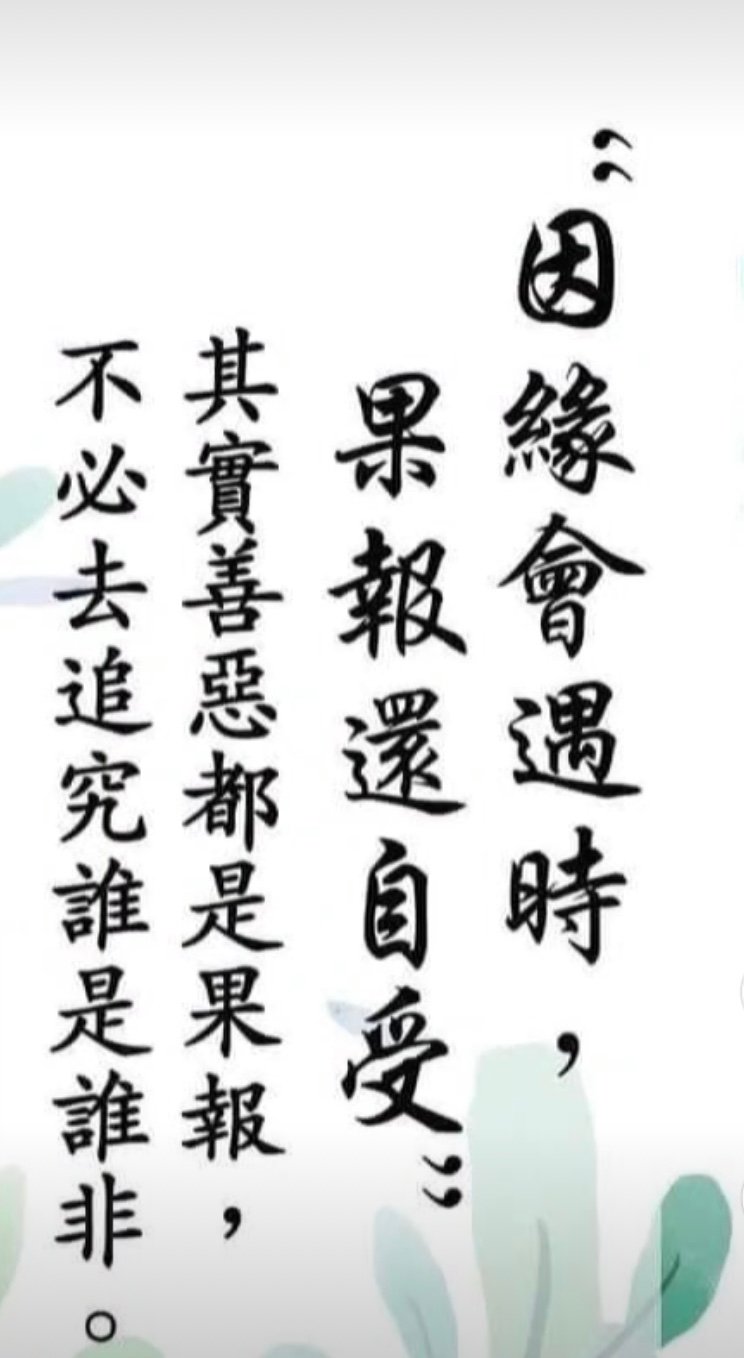 “因緣會遇時，
果報還自受”
其實善惡都是果報，
不必去追究誰是誰非。